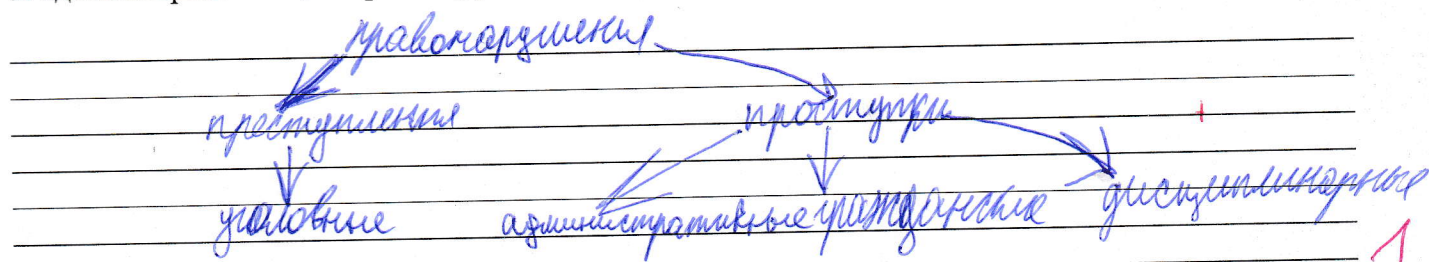 правонарушения
преступления проступки +
уголовные административные гражданские дисциплинарные
1